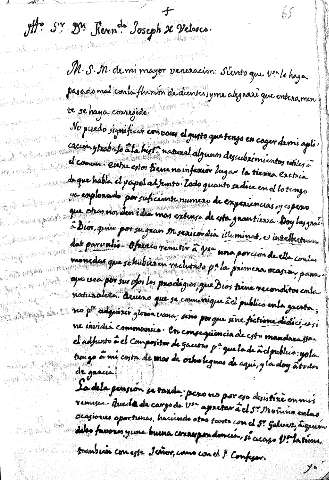 65
+
Yllmo Sr Dn Ferndo Joseph de Velasco.
M. S. M. de mi mayor veneracion: Siento que Vsa le haya
pasado mal con la fluxion de dientes, y me alegraré que enteramen-
te se haya corregido.
No puedo significar con voces el gusto que tengo en coger de mi apli-
cacion y trabajo à la histª natural algunos descubrimientos utiles à
el comun. Entre estos tiene no inferior lugar la tierra
de que habla el papel adjunto. Todo quanto se dice en el lo tengo
explorado por suficiente numero de experiencias, y espero
que otros nos den idea mas extensa de esta gran tierra. Doy las gracs
à Dios, quien por su gran Misericordia illuminat, et intellectum
dat parvulis. Ofrezco remitir à Vsa una porcion de ella con las
monedas que se hubieren reclutado pª la primera ocasion, para
que vea por sus ojos los prodigios que Dios tiene reconditos en la
naturaleza. Quiero que se comunique à el publico en la gazeta,
no pª adquirir gloria vana, sino porque sine fictione didici, et si-
ne invidia communico. En consequencia de esto mandara
el adjunto à el Compositor de gazetas pª que la dè à el publico: yo la
tengo à mi costa de mas de ocho leguas de aqui, y la doy à todos
de gracia.
La de la pension se tarda; pero no por eso desistire en mis
remesas. Queda de cargo de Vsa apretar à el Sr Moñino en las
ocasiones oportunas, haciendo otro tanto con el Sr Galvez, à quien
debo favores y una buena correspondencia, si acaso Vsa la tiene
tambien con este Señor, como con el P. Confesor.
Yo